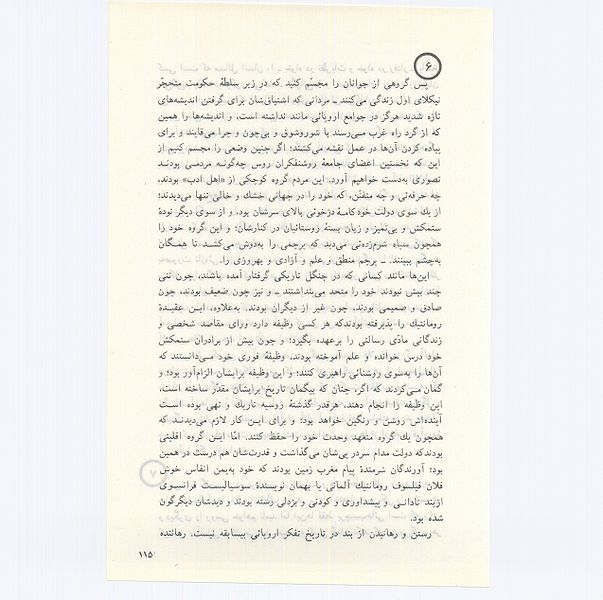 ۶
پس گروهی از جوانان را مجسّم کنید که در زیر سلطهٔ حکومت متحجّر
نیکلای اول زندگی می‌کنند ـ مردانی که اشتیاق‌شان برای گرفتن اندیشه‌های
تازه شدید هرگز در جوامع اروپائی مانند نداشته است، و اندیشه‌ها را همین
که از گرد راه غرب می‌رسند با شوروشوق و بی‌چون و چرا می‌قاپند و برای
پیاده کردن آن‌ها در عمل نقشه می‌کشند؛ اگر چنین وضعی را مجسم کنیم از
این که نخستین اعضای جامعهٔ روشنفکران روس چه‌گونه مردمی بودند
تصوری به‌دست خواهیم آورد. این مردم گروه کوچکی از «اهل ادب» بودند،
چه حرفه‌ئی و چه متفنّن، که خود را در جهانی خشك و خالی تنها می‌دیدند؛
از یك سوی دولت خودکامهٔ دژخوئی بالای سرشان بود، و از سوی دیگر تودهٔ
ستمکش و بی‌تمیز و زبان بستهٔ روستائیان در کنارشان؛ و این گروه خود را
همچون سپاه شرم‌زده‌ئی می‌دید که پرچمی را به‌دوش می‌کشد تا همگان
به‌چشم ببینند. ـ پرچم منطق و علم و آزادی و بهروزی را.
این‌ها مانند کسانی که در جنگل تاریکی گرفتار آمده باشند، چون تنی
چند بیش نبودند خود را متحد می‌پنداشتند ـ و نیز چون ضعیف بودند، چون
صادق و صمیمی بودند، چون غیر از دیگران بودند. به‌علاوه، این عقیدهٔ
رومانتیك را پذیرفته بودندکه هر کسی وظیفه دارد ورای مقاصد شخصی و
زندگانی مادّی رسالتی را برعهده بگیرد؛ و چون بیش از برادران ستمکش
خود درس خوانده، و علم آموخته بودند، وظیفهٔ فوری خود می‌دانستند که
آن‌ها را به‌سوی روشنائی راهبری کنند؛ و این وظیفه برایشان الزام‌آور بود؛ و
گمان می‌کردند که اگر، چنان که بیگمان تاریخ برایشان مقدّر ساخته است،
این وظیفه را انجام دهند، هرقدر گذشتهٔ روسیه تاریك و تهی بوده است
آینده‌اش روشن و رنگین خواهد بود؛ و برای این کار لازم می‌دیدند که
همچون یك گروه متعهد وحدت خود را حفظ کنند. امّا این گروه اقلیتی
بودندکه دولت مدام سردر پی‌شان می‌گذاشت و قدرت‌شان هم درست در همین
بود؛ آورندگان شرمندهٔ پیام مغرب زمین بودند که خود به‌یمن انفاس خوش
فلان فیلسوف رومانتیك آلمانی یا بهمان نویسندهٔ سوسیالیست فرانسوی
ازبند نادانی و پیشداوری و کودنی و بزدلی رسته بودند و دیدشان دیگرگون
شده بود.
رستن و رهانیدن از بند در تاریخ تفکر اروپائی بیسابقه نیست. رهاننده
۱۱۵